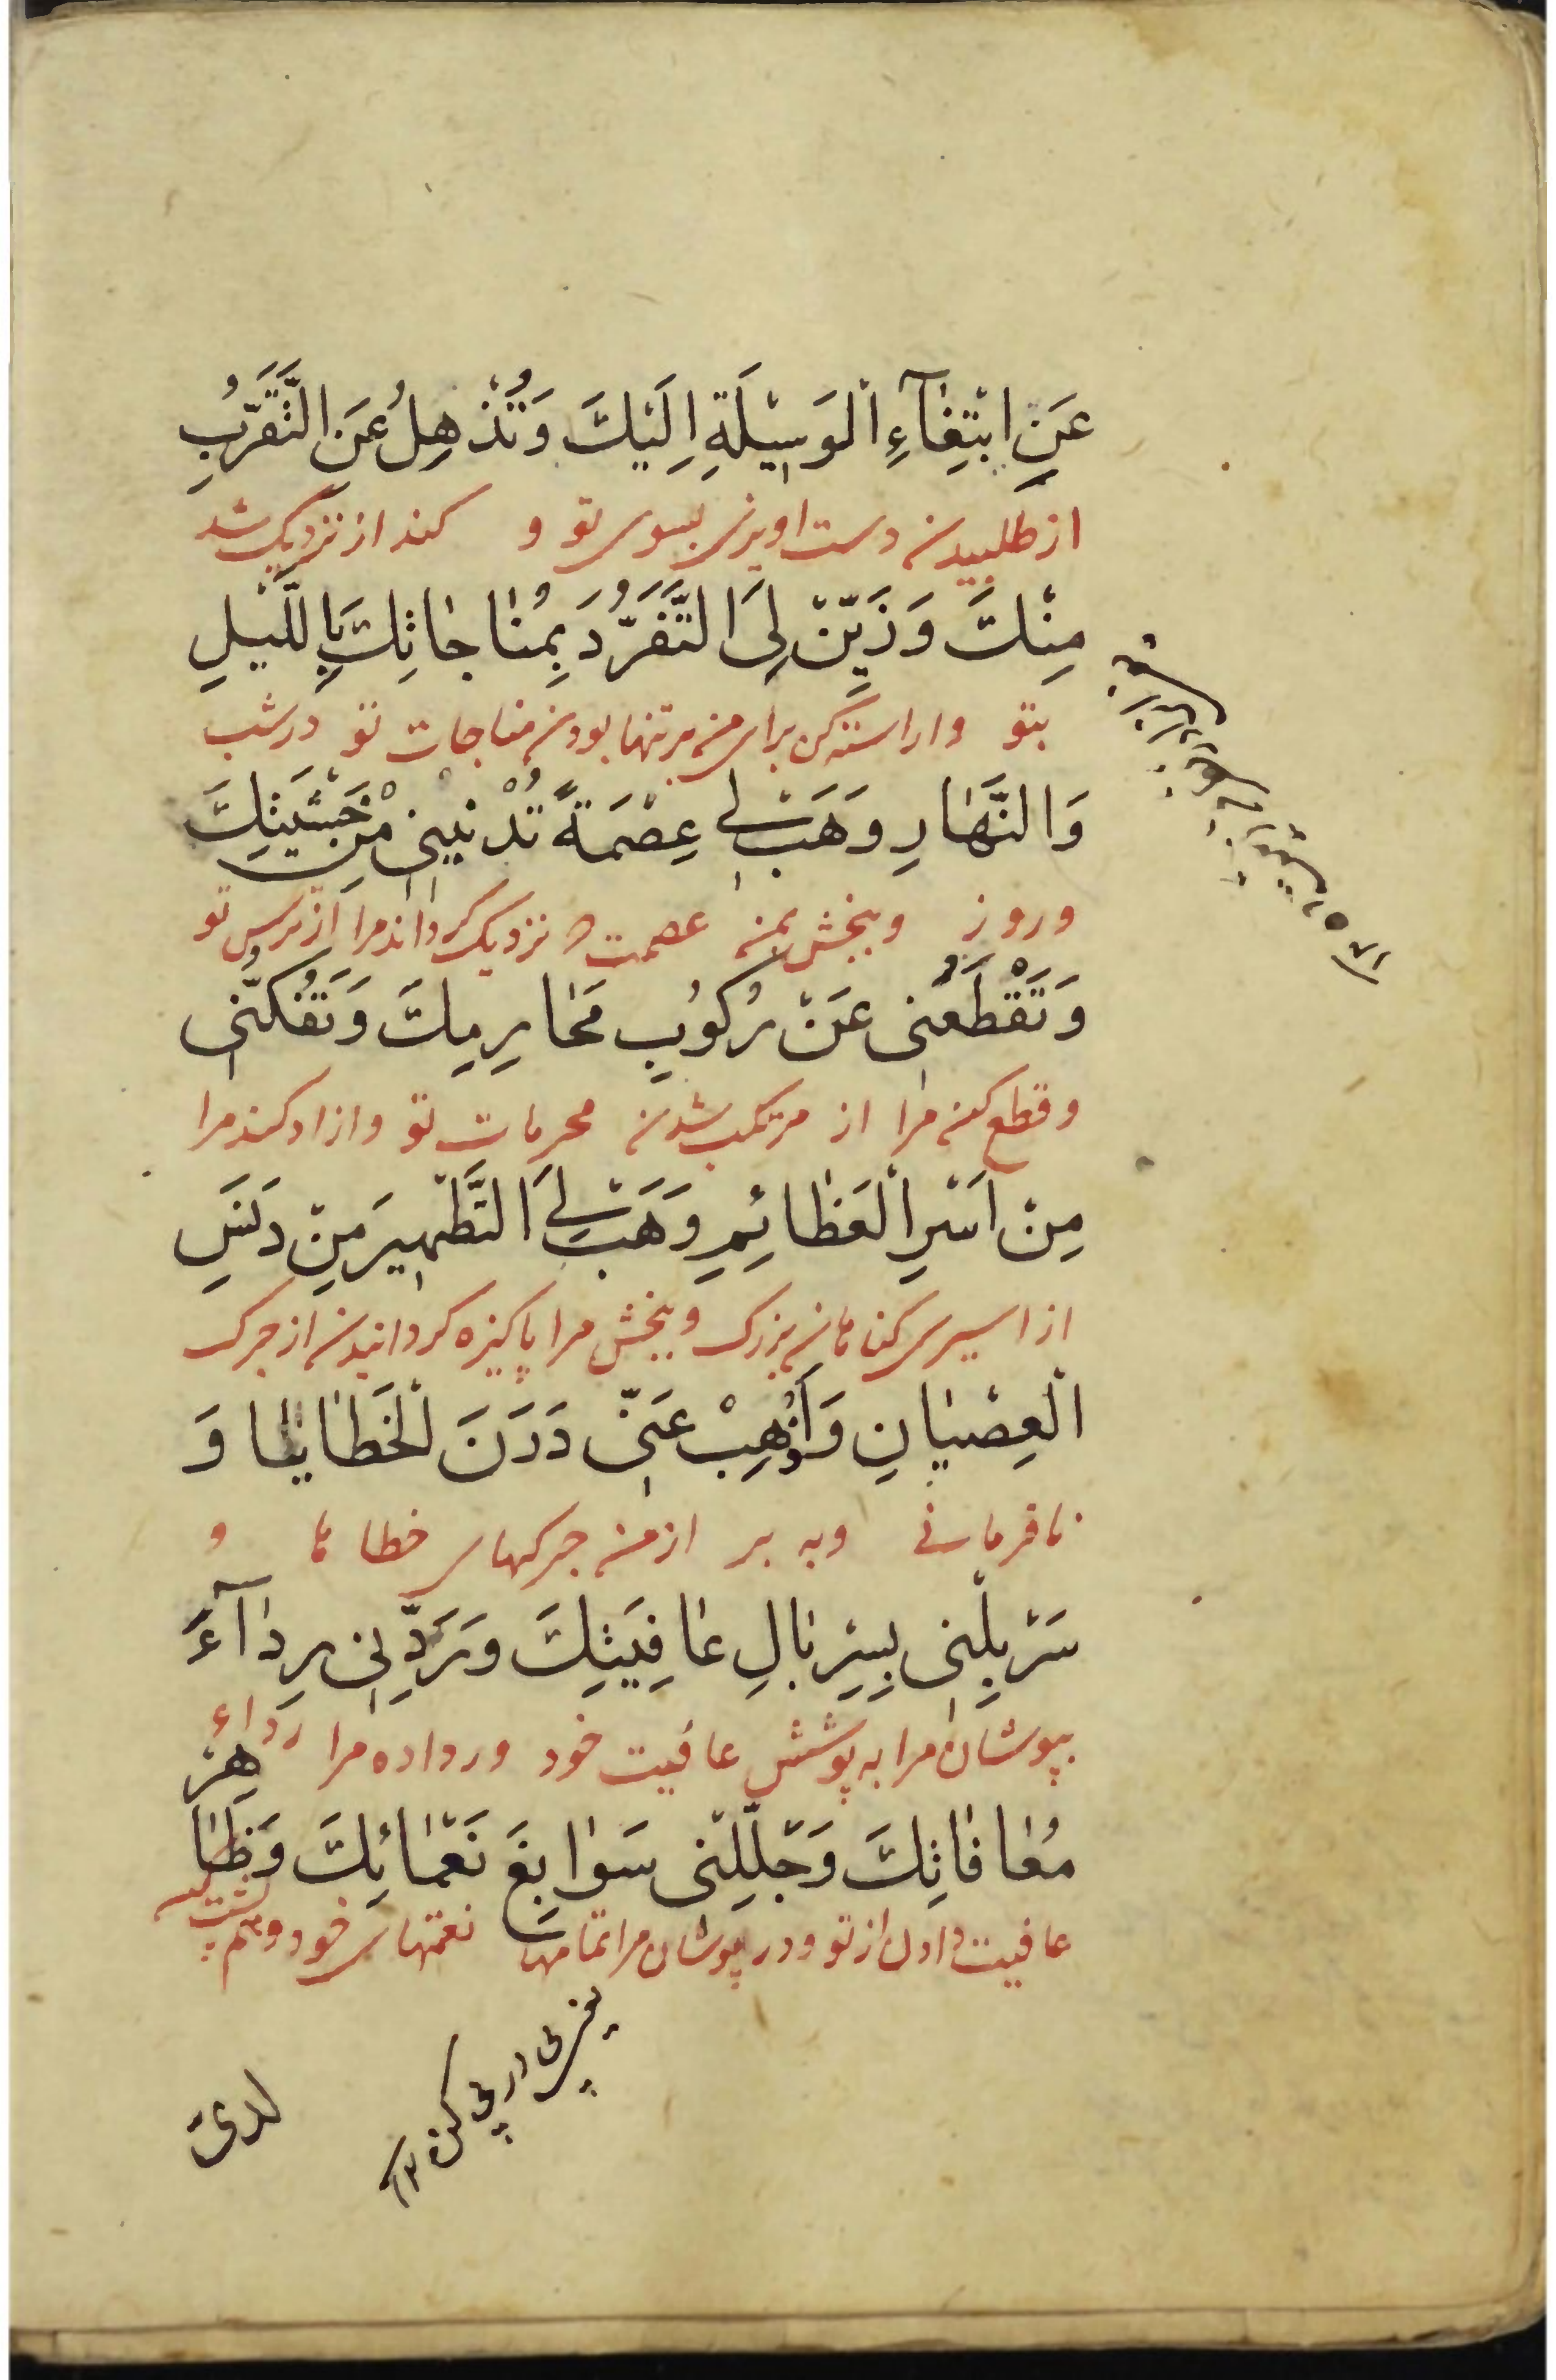 عَنِ ابْتِغٰآءِ الْوَسیٖلَةِ اِلَیْكَ وَتُذْهِلُ عَنِ التَّقَرُّبِ
از طلبیدن دست اویزی بسوی تو و کند از نزدیک شد
مِنْكَ وَزَیِّنْ لِیَ التَّفَرُّدَ بِمُنٰاجٰاتِكَ بِاللَّیْلِ
بتو واراسته کن برای من مر تنها بودن مناجات تو در شب
وَالنَّهٰارِ وَهَبْ لی عِصْمَةً تُدْنیٖنیٖ مِنْ خَشْیَتِكَ
و روز و ببخش بمن عصمت که نزدیک کرداند مرا از ترس تو
وَتَقْطَعُنی عَنْ رُكُوبِ مَحٰارِمِكَ وَتَفُكُّنیٖ
و قطع کند مرا از مرتکب شدن محرمات تو و ازاد کند مرا
مِنْ اَسْرِ الْعَظٰائِمِ وَهَبْ لِیَ التَّطْهیٖرَ مِنْ دَنَسِ
از اسیری کناهان بزرک و ببخش مرا پاکیزه کردانیدن از چرک
الْعِصْیٰانِ وَأَذْهِبْ عَنّیٖ دَرَنَ الْخَطٰایٰا وَ
نافرمانی و به بر از من چرکهای خطاها و
سَرْبِلْنی بِسِرْبٰالِ عٰافِیَتِكَ وَرَدِّنیٖ رِدٰآءَ
بپوشان مرا به پوشش عافیت خود و رداده مرا رداء
مُعٰافٰاتِكَ وَجَلِّلْنیٖ سَوٰابِغَ نَعْمٰائِكَ وَظٰاهِرْ
عافیت دادن از تو و در پوشان مرا تمامهای نعمتهای خود و هم پشت
لدی